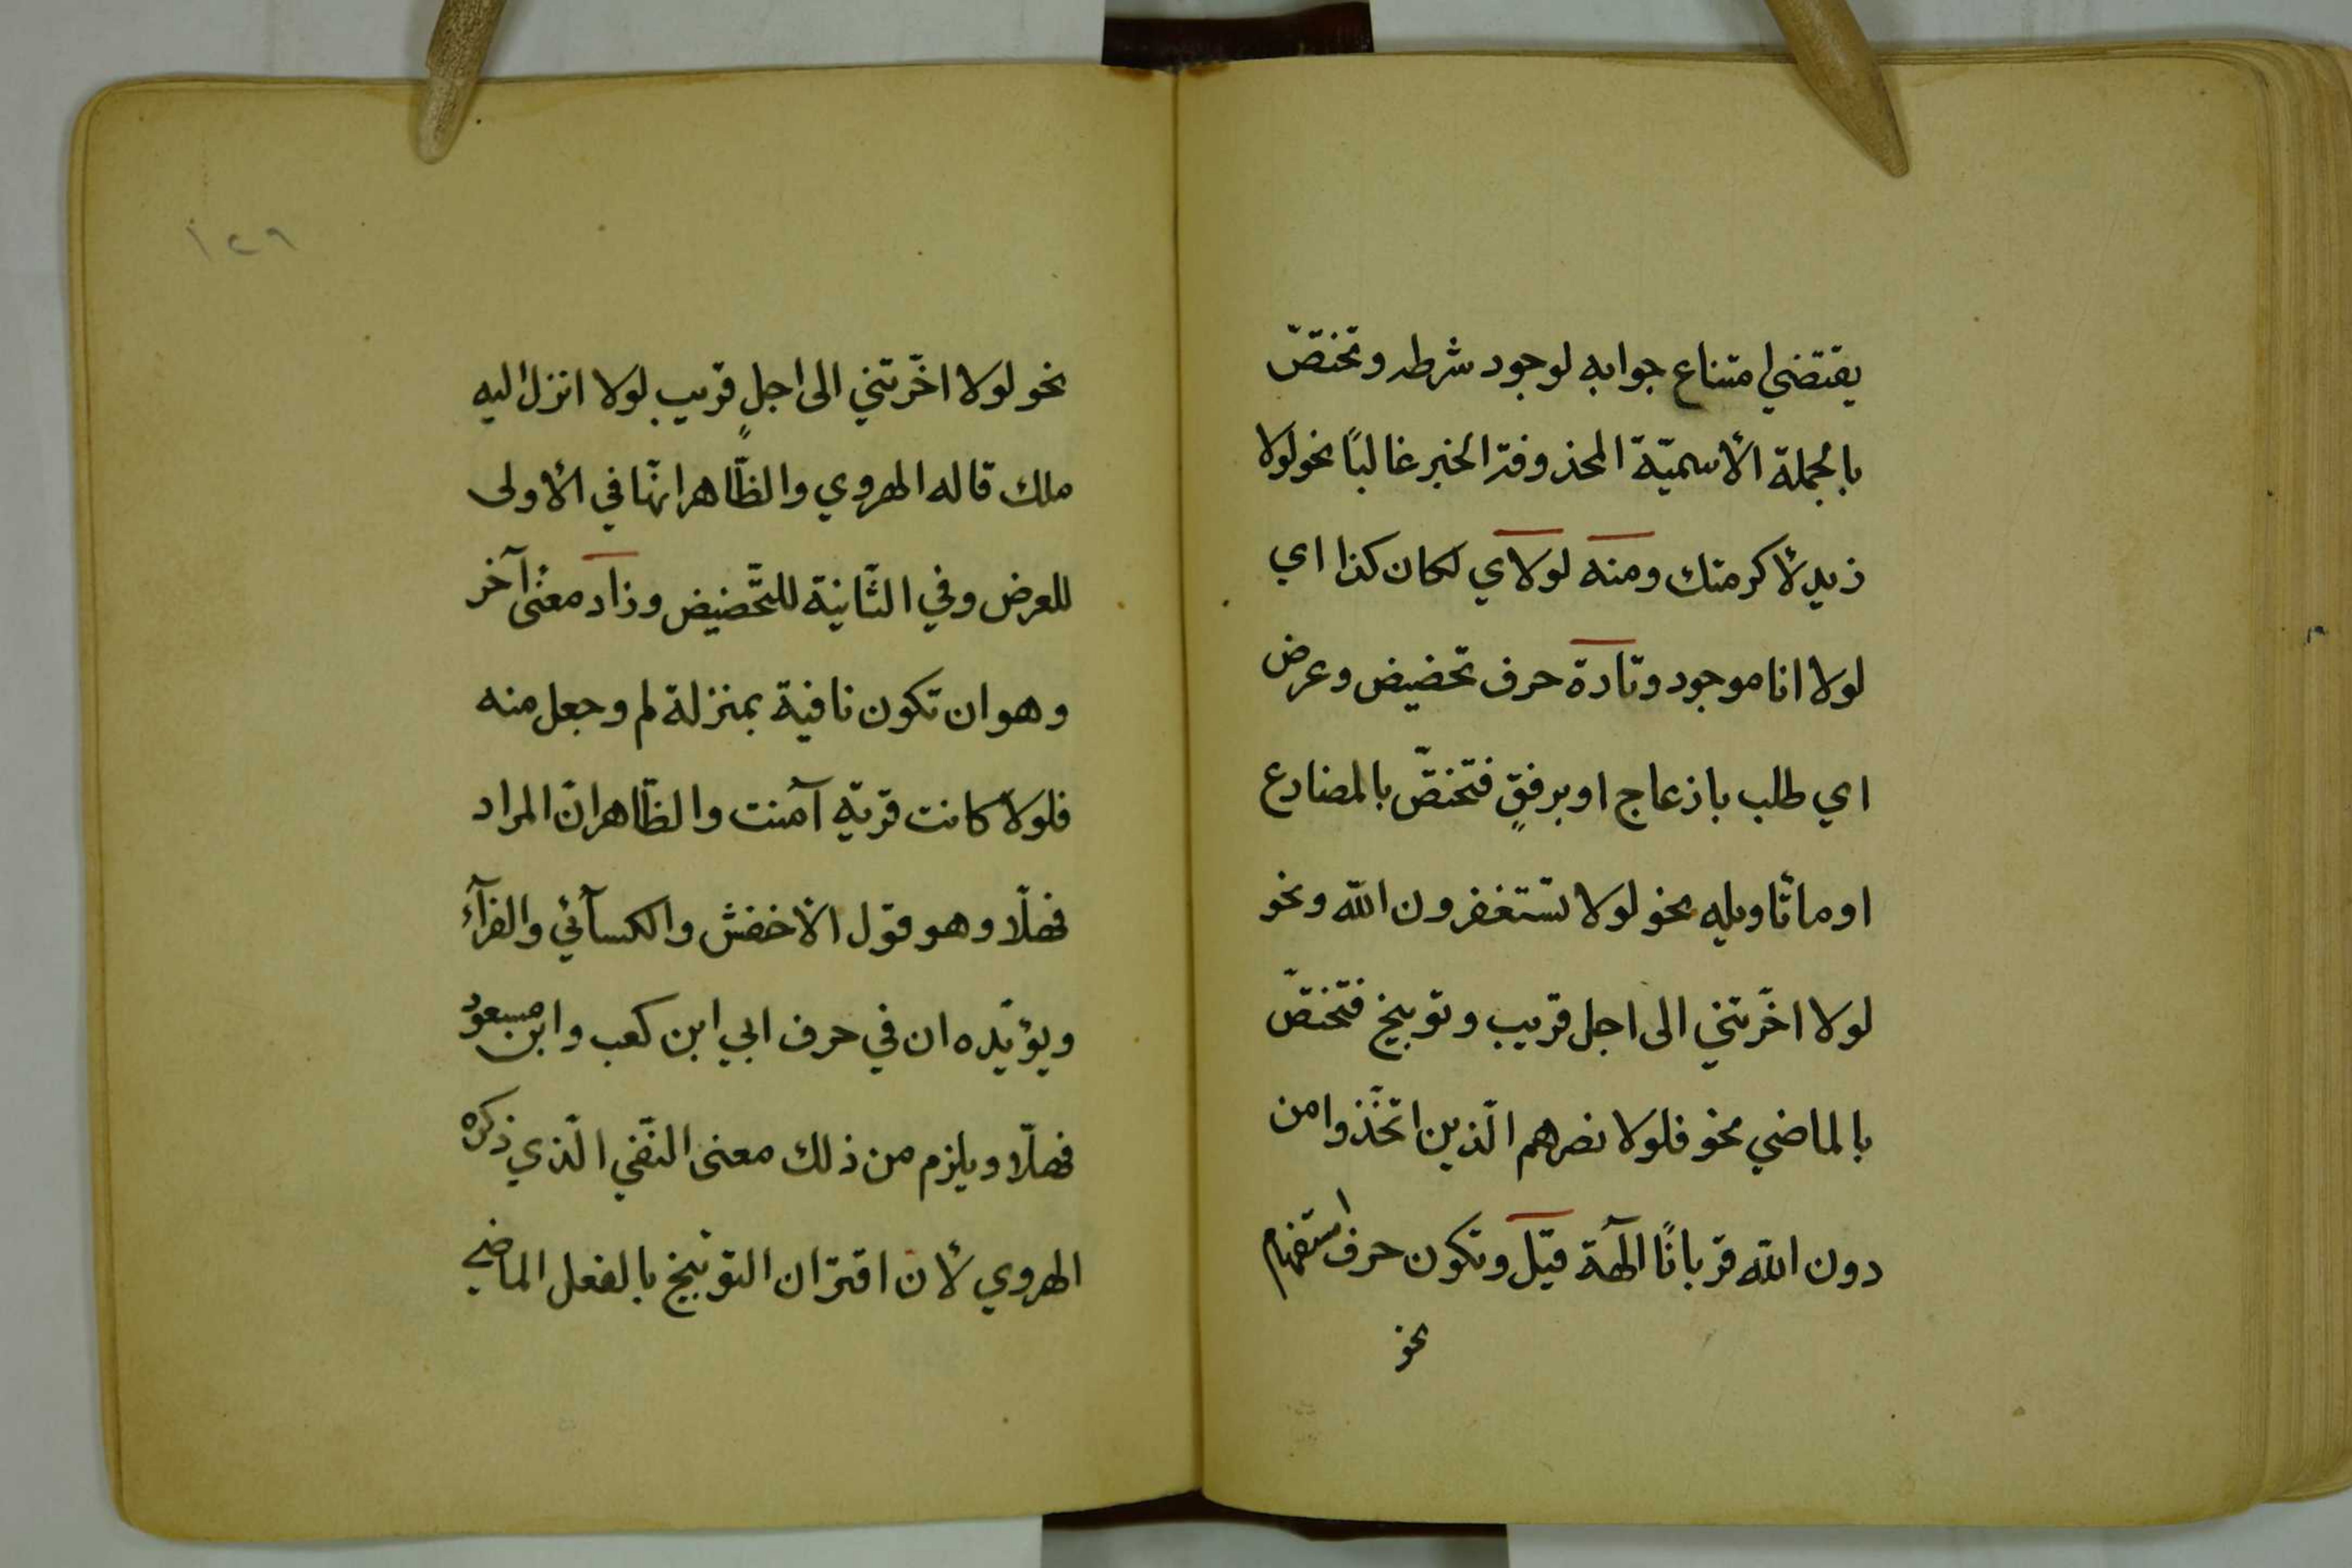 يقتضي امتناع جوابه لوجود شرطه وتختصّ
بالجملة الأسميّة المحذوفة الخبر غالبًا نحو لولا
زيد لأكرمتك ومنه لولاي لكان كذا اي
لولا انا موجود وتارة حرف تحضيض وعرض
اي طلب بازعاج او برفقٍ فتختصّ بالمضارع
او ما تأويله نحو لولا تستغفرون اللّه ونحو
لولا اخّرتني الى اجل قريب وتوبيخ فتختصّ
بالماضي نحو فلولا نصرهم الّذين اتّخذوا من
دون اللّه قربانًا آلهة قيل وتكون حرف استفهام
نحو
١٢٩
نحو لولا اخّرتني الى اجلٍ قريب لولا انزل اليه
ملك قاله الهروي والظّاهر انهّا في الأولى
للعرض وفي الثّانية للتّحضيض وزاد معنى آخر
وهو ان تكون نافية بمنزلة لم وجعل منه
فلولا كانت قرية آمنت والظّاهر انّ المراد
فهلّا وهو قول الأخفش والكسآئي والفرآء
ويؤيّده ان في حرف ابي ابن كعب وابن مسعود
فهلّا ويلزم من ذلك معنى النّفي الّذي ذكره
الهروي لأن اقتران التوبيخ بالفعل الماضي